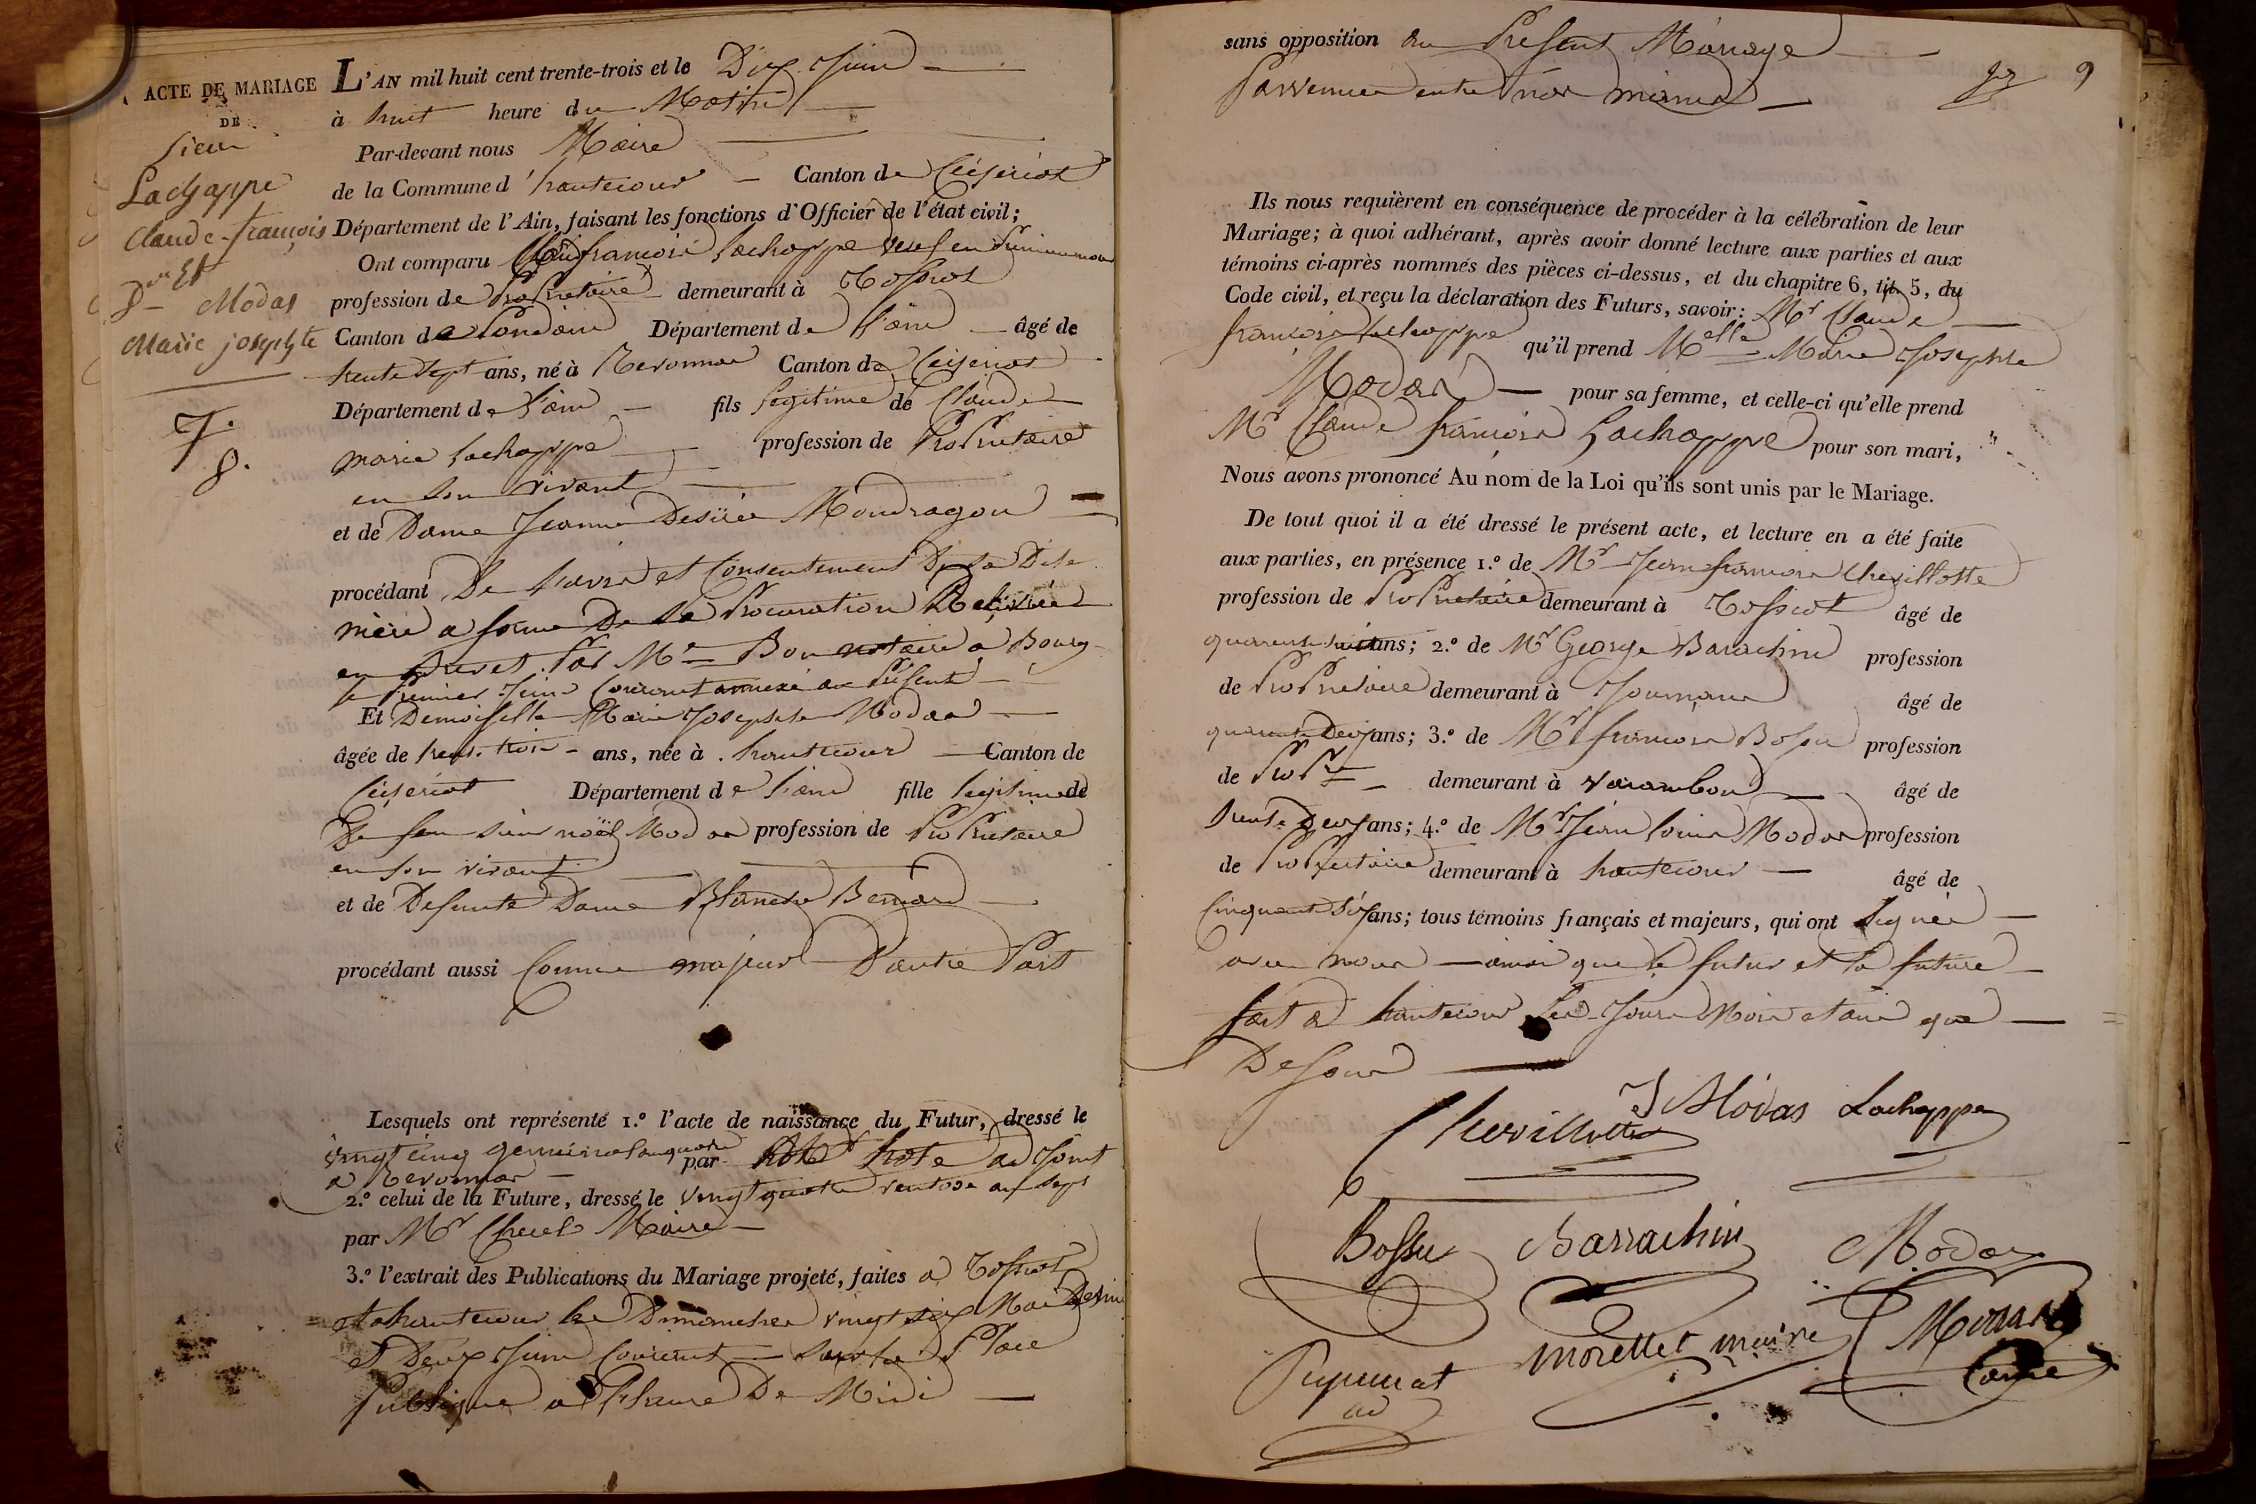 ACTE DE MARIAGE
DE
Sieur
Lachappe
Claude-françois
Et
Dlle Modas
Marie josephte
7.
8.
L'AN mil huit cent trente-trois et le Dix Juin
à huit heure du Matin
Par-devant nous Maire
de la Commune d'hautecour Canton de Ceyseriat
Département de l'Ain, faisant les fonctions d'Officier de l'état civil;
Ont comparu Claude francois Lachappe
profession de ProPrietaire demeurant à Tossiat
Canton de Pondain Département de L'ain âgé de
trente sept ans, né à Revonnas Canton de Ceiseriat
Département de L'ain fils légitime de Claude
marie Lachappe profession de ProPrietaire
en son vivant
et de Dame Jeanne Desirée Mondragon
procédant De L'avis et Consentement De Sa Dite
mère a forme De Sa Procuration
en Brevet Par Me Bon notaire a Bourg
le Premier Juin Courant annexé au Présent
Et Demoiselle Marie Josephte Modas
âgée de trente trois ans, née à hautecour Canton de
Ceiseriat Département de L'ain fille legitime de
De feu Sieur noël Modas profession de ProPrietaire
en son vivant
et de Defunte Dame Blanche Bernard
procédant aussi Comme majeur D'autre Part
Lesquels ont représenté 1.º l'acte de naissance du Futur, dressé le
vingt cinq germinal an quatre par hote adjoint
a Revonnas
2.º celui de la Future, dressé le vingt quatre ventose an Sept
par Mr Maire
3.º l'extrait des Publications du Mariage projeté, faites a Tossiat
et a hautecour les Dimanches vingt six Mai Dernier
et Deux Juin Courant Sur la Place
Publique a L'heure De Midi
sans opposition au Présent Mariage
Parvenue entre nos mains
9
Ils nous requièrent en conséquence de procéder à la célébration de leur
Mariage; à quoi adhérant, après avoir donné lecture aux parties et aux
témoins ci-après nommés des pièces ci-dessus, et du chapitre 6, tit. 5, du
Code civil, et reçu la déclaration des Futurs, savoir: Mr Claude
francois Lachappe qu'il prend Melle Marie Josephte
Modas pour sa femme, et celle-ci qu'elle prend
Mr Claude francois Lachappe pour son mari,
Nous avons prononcé Au nom de la Loi qu'ils sont unis par le Mariage.
De tout quoi il a été dressé le présent acte, et lecture en a été faite
aux parties, en présence 1.º de Mr Jean francois Chevillotte
profession de ProPrietaire demeurant à Tossiat âgé de
quarante huit ans; 2.º de Mr George Barachin profession
de ProPrietaire demeurant à Journans âgé de
quarante Deux ans; 3.º de Mr francois Bossu profession
de ProPre demeurant à varambon âgé de
trente Deux ans; 4.º de Mr Jean Louis Modas profession
de ProPrietaire demeurant à hautecour âgé de
Cinquante Six ans; tous témoins français et majeurs, qui ont Signés
avec nous ainsi que le futur et la future
fait a hautecour Les Jours Mois et an que
Dessus
Chevillotte J Modas Lachappe
Bossu Barrachin Modas
morellet maire